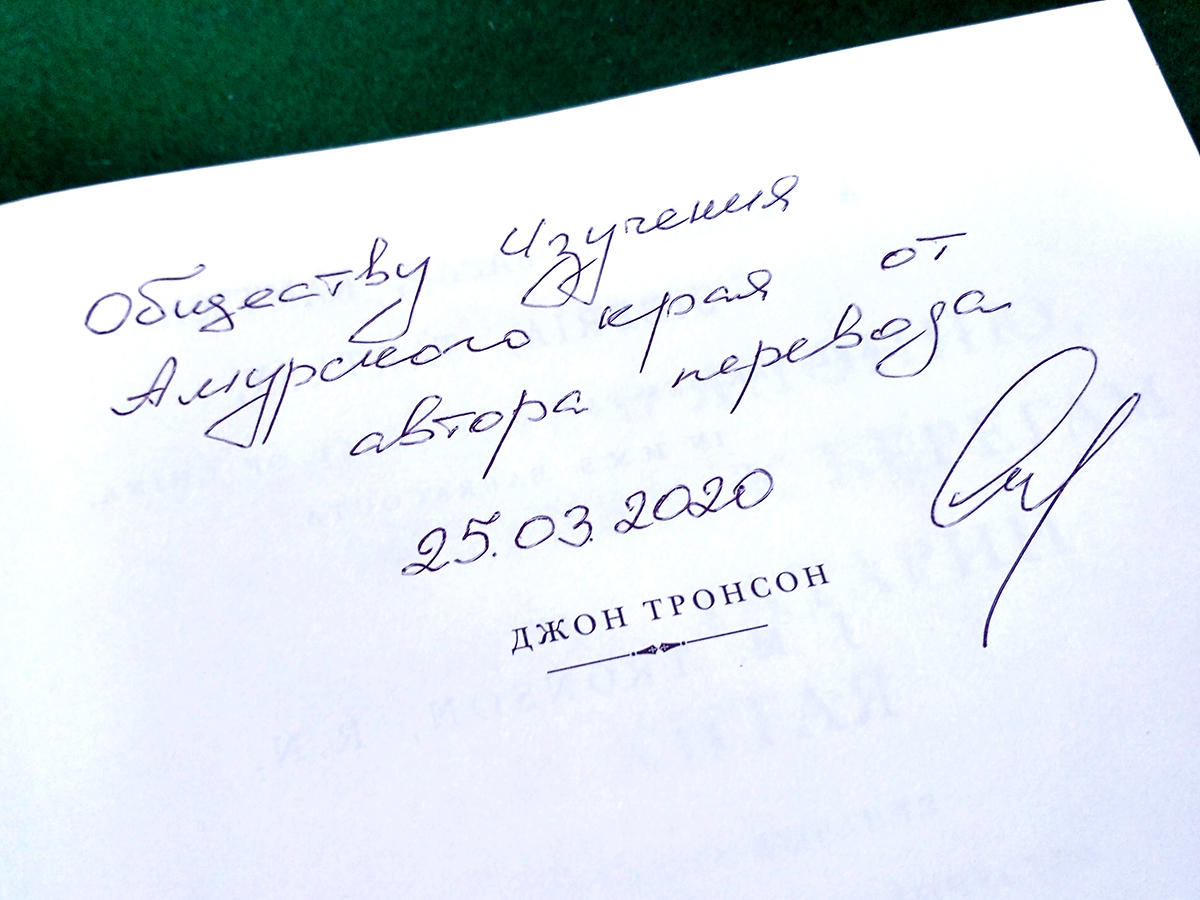 Обществу Изучения
Амурского края от
автора перевода
25.03.2020
ДЖОН ТРОНСОН